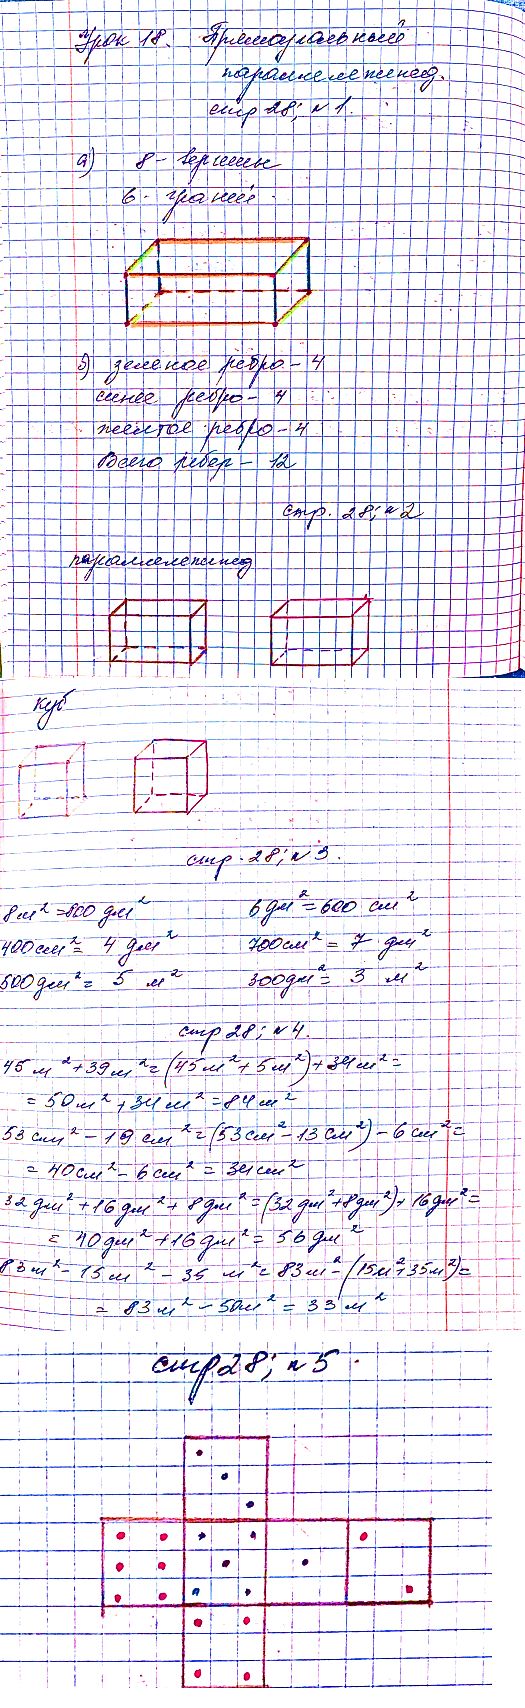 Урок 18. Прямоугольный
параллелепипед.
стр 28; № 1.
а) 8 - вершин
6 - граней.
б) зеленое ребро - 4
синее ребро - 4
желтое ребро - 4
Всего ребер - 12
стр. 28; № 2
параллелепипед
куб
стр. 28; № 3.
8 м² = 800 дм² 6 дм² = 600 см²
400 см² = 4 дм² 700 см² = 7 дм²
500 дм² = 5 м² 300 дм² = 3 м²
стр 28; № 4.
45 м² + 39 м² = (45 м² + 5 м²) + 34 м² =
= 50 м² + 34 м² = 84 м²
53 см² - 19 см² = (53 см² - 13 см²) - 6 см² =
= 40 см² - 6 см² = 34 см²
32 дм² + 16 дм² + 8 дм² = (32 дм² + 8 дм²) + 16 дм² =
= 40 дм² + 16 дм² = 56 дм²
83 м² - 15 м² - 35 м² = 83 м² - (15 м² + 35 м²) =
= 83 м² - 50 м² = 33 м²
стр 28; № 5.